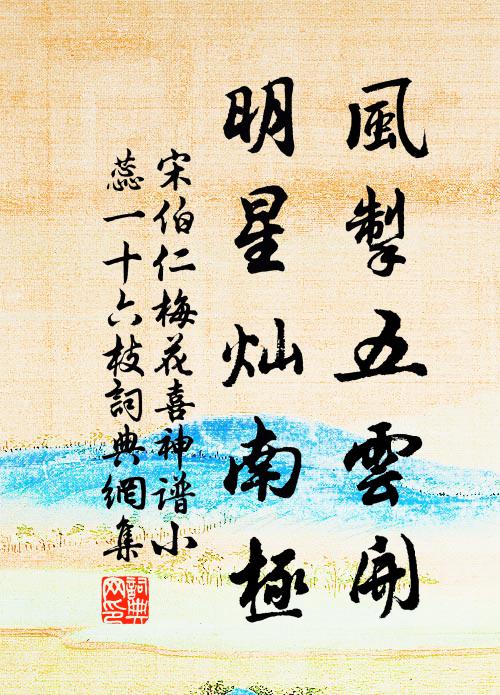 風掣五雲開
明星灿南極
宋伯仁梅花喜神谱小
蕊一十六枝詞典網集
詞典网印